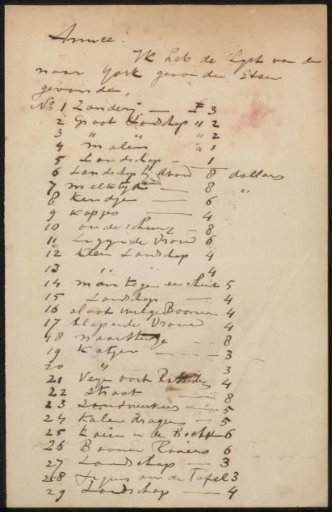 Annee.
Ik heb de Lijst van de
naar York gezonden Etsen
gevonden,
No 1 Zanderij — F 3
2 Groot Landschap " 2
3 " " " 2
4 Molen " 1
5 Landschap - 1
6 Landschap bij avond 8 dollars
7 Melktijd — 8 "
8 Kindje — 6
9 Kopjes — 4
10 on de schuur - 8
11 Liggende Vrouw 6
12 Klein Landschap 4
13 " " 4
14 Man tegen een huis 5
15 Landschap — 4
16 sloot met Boomen 4
17 Slapende Vrouw 4
18 — 8
19 Katjes — 3
20 " 3
21 Voor 4
22 Straat — 8
23 Landwerkers — 5
24 Kolen dragers — 5
25 in de Bocht 6
26 Boomen 6
27 Landschap — 3
28 aan de Tafel 3
29 Landschap — 4